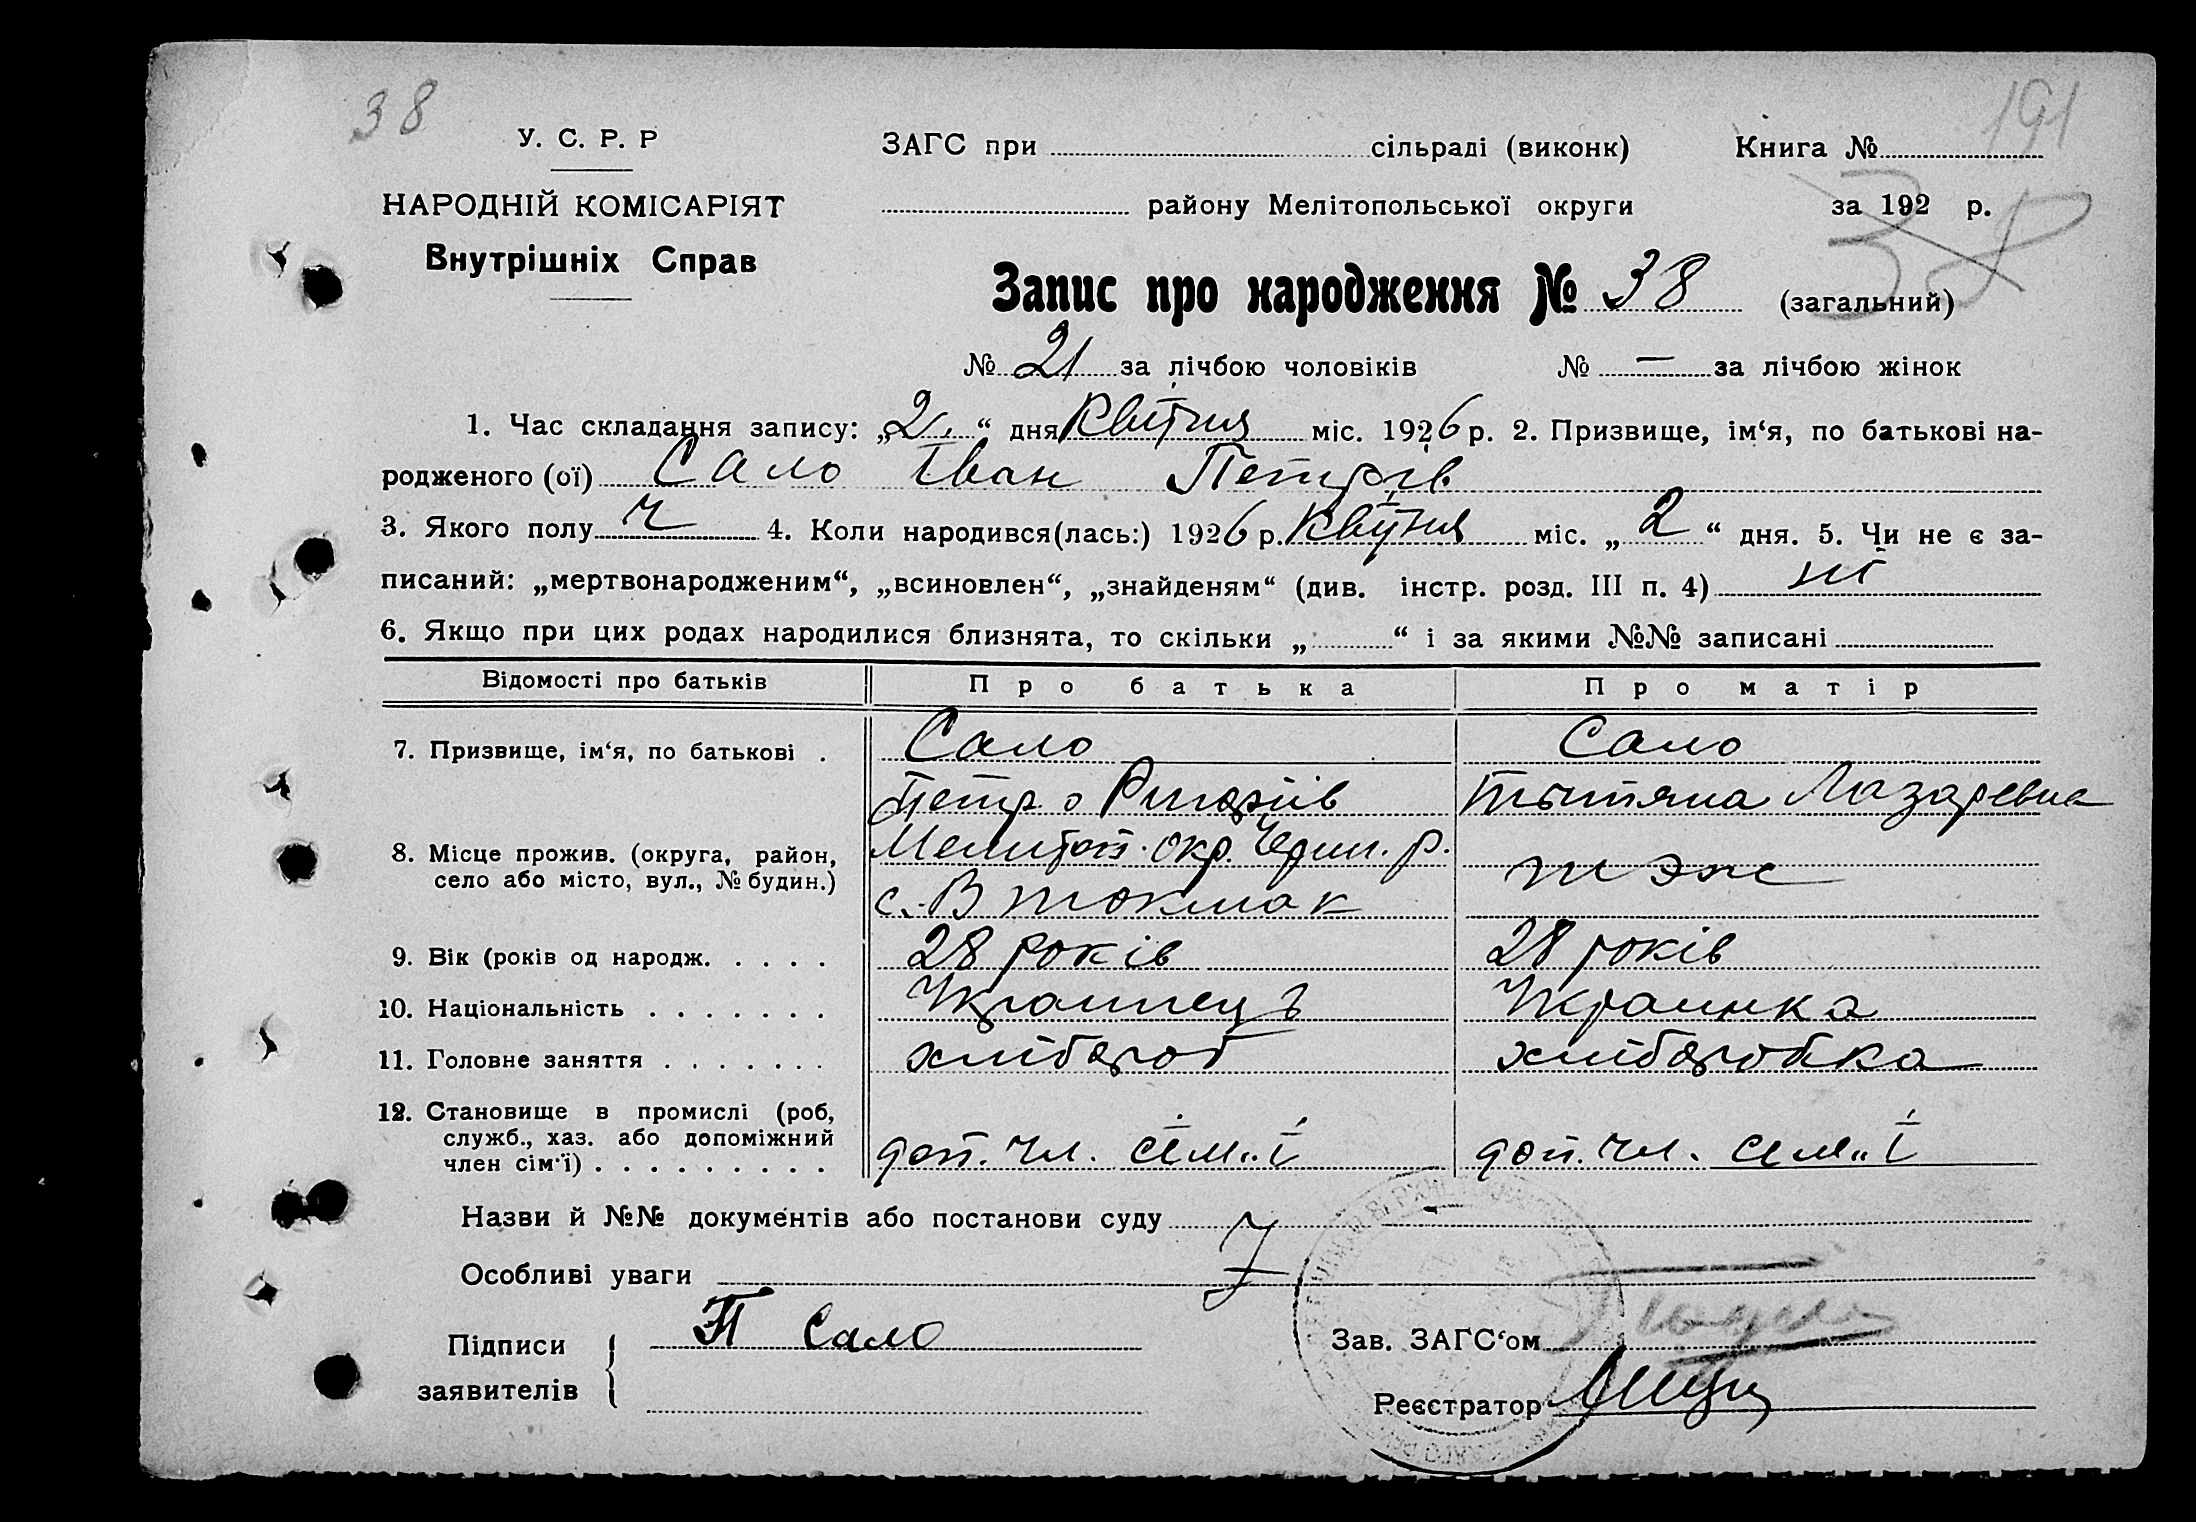 38
191
У. С. Р. Р
ЗАГС при сільраді (виконк) Книга №
НАРОДНІЙ КОМІСАРІЯТ
району Мелітопольської округи за 192 р.
Внутрішніх Справ
38
Запис про народження № 38 (загальний)
№ 21 за лічбою чоловіків № — за лічбою жінок
1. Час складання запису: „2“ дня Квітня міс. 1926 р. 2. Призвище, ім‘я, по батькові на-
родженого (ої) Сало Іван Петрів
3. Якого полу ч 4. Коли народився(лась:) 1926 р. Квітня міс. „2“ дня. 5. Чи не є за-
писаний: „мертвонародженим“, „всиновлен“, „знайденям“ (див. інстр. розд. III п. 4) ні
6. Якщо при цих родах народилися близнята, то скільки „ “ і за якими №№ записані
Відомості про батьків Про батька Про матір
7. Призвище, ім‘я, по батькові . Сало Сало
Петро Тытяна Лазаревна
8. Місце прожив. (округа, район, Мелитоп. окр. р.
село або місто, вул., № будин.) с. В Токмак тэж
9. Вік (років од народж. . . . . 28 років 28 років
10. Національність . . . . . . . Украинець Украинка
11. Головне заняття . . . . . . . хлібороб хліборобка
12. Становище в промислі (роб, служб., хаз. або допоміжний член сім‘ї) . . . . . . . . . доп. чл. сім„ї доп. чл. сем„ї
Назви й №№ документів або постанови суду
Особливі уваги
Підписи П Сало Зав. ЗАГС‘ом
заявителів Реєстратор